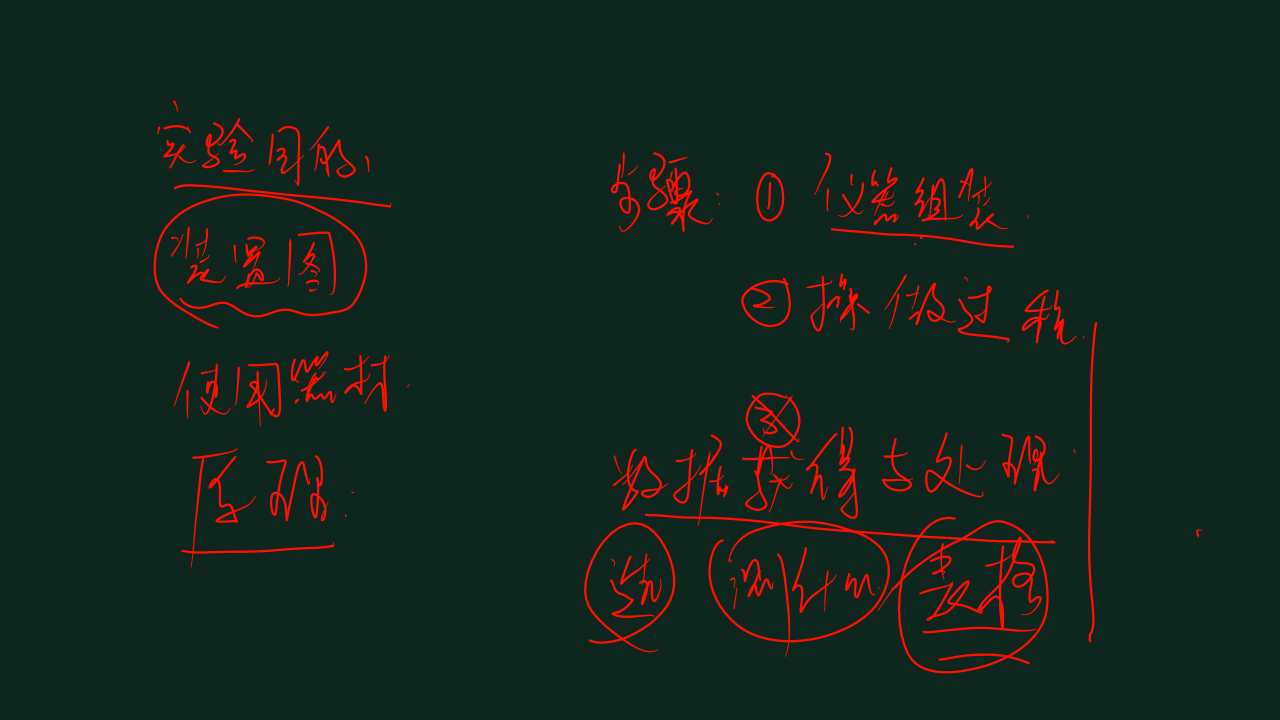 实验目的
装置图
使用器材
原理:
步骤: ① 仪器组装
② 操做过程
③
数据获得与处理:
选 测 计 表格